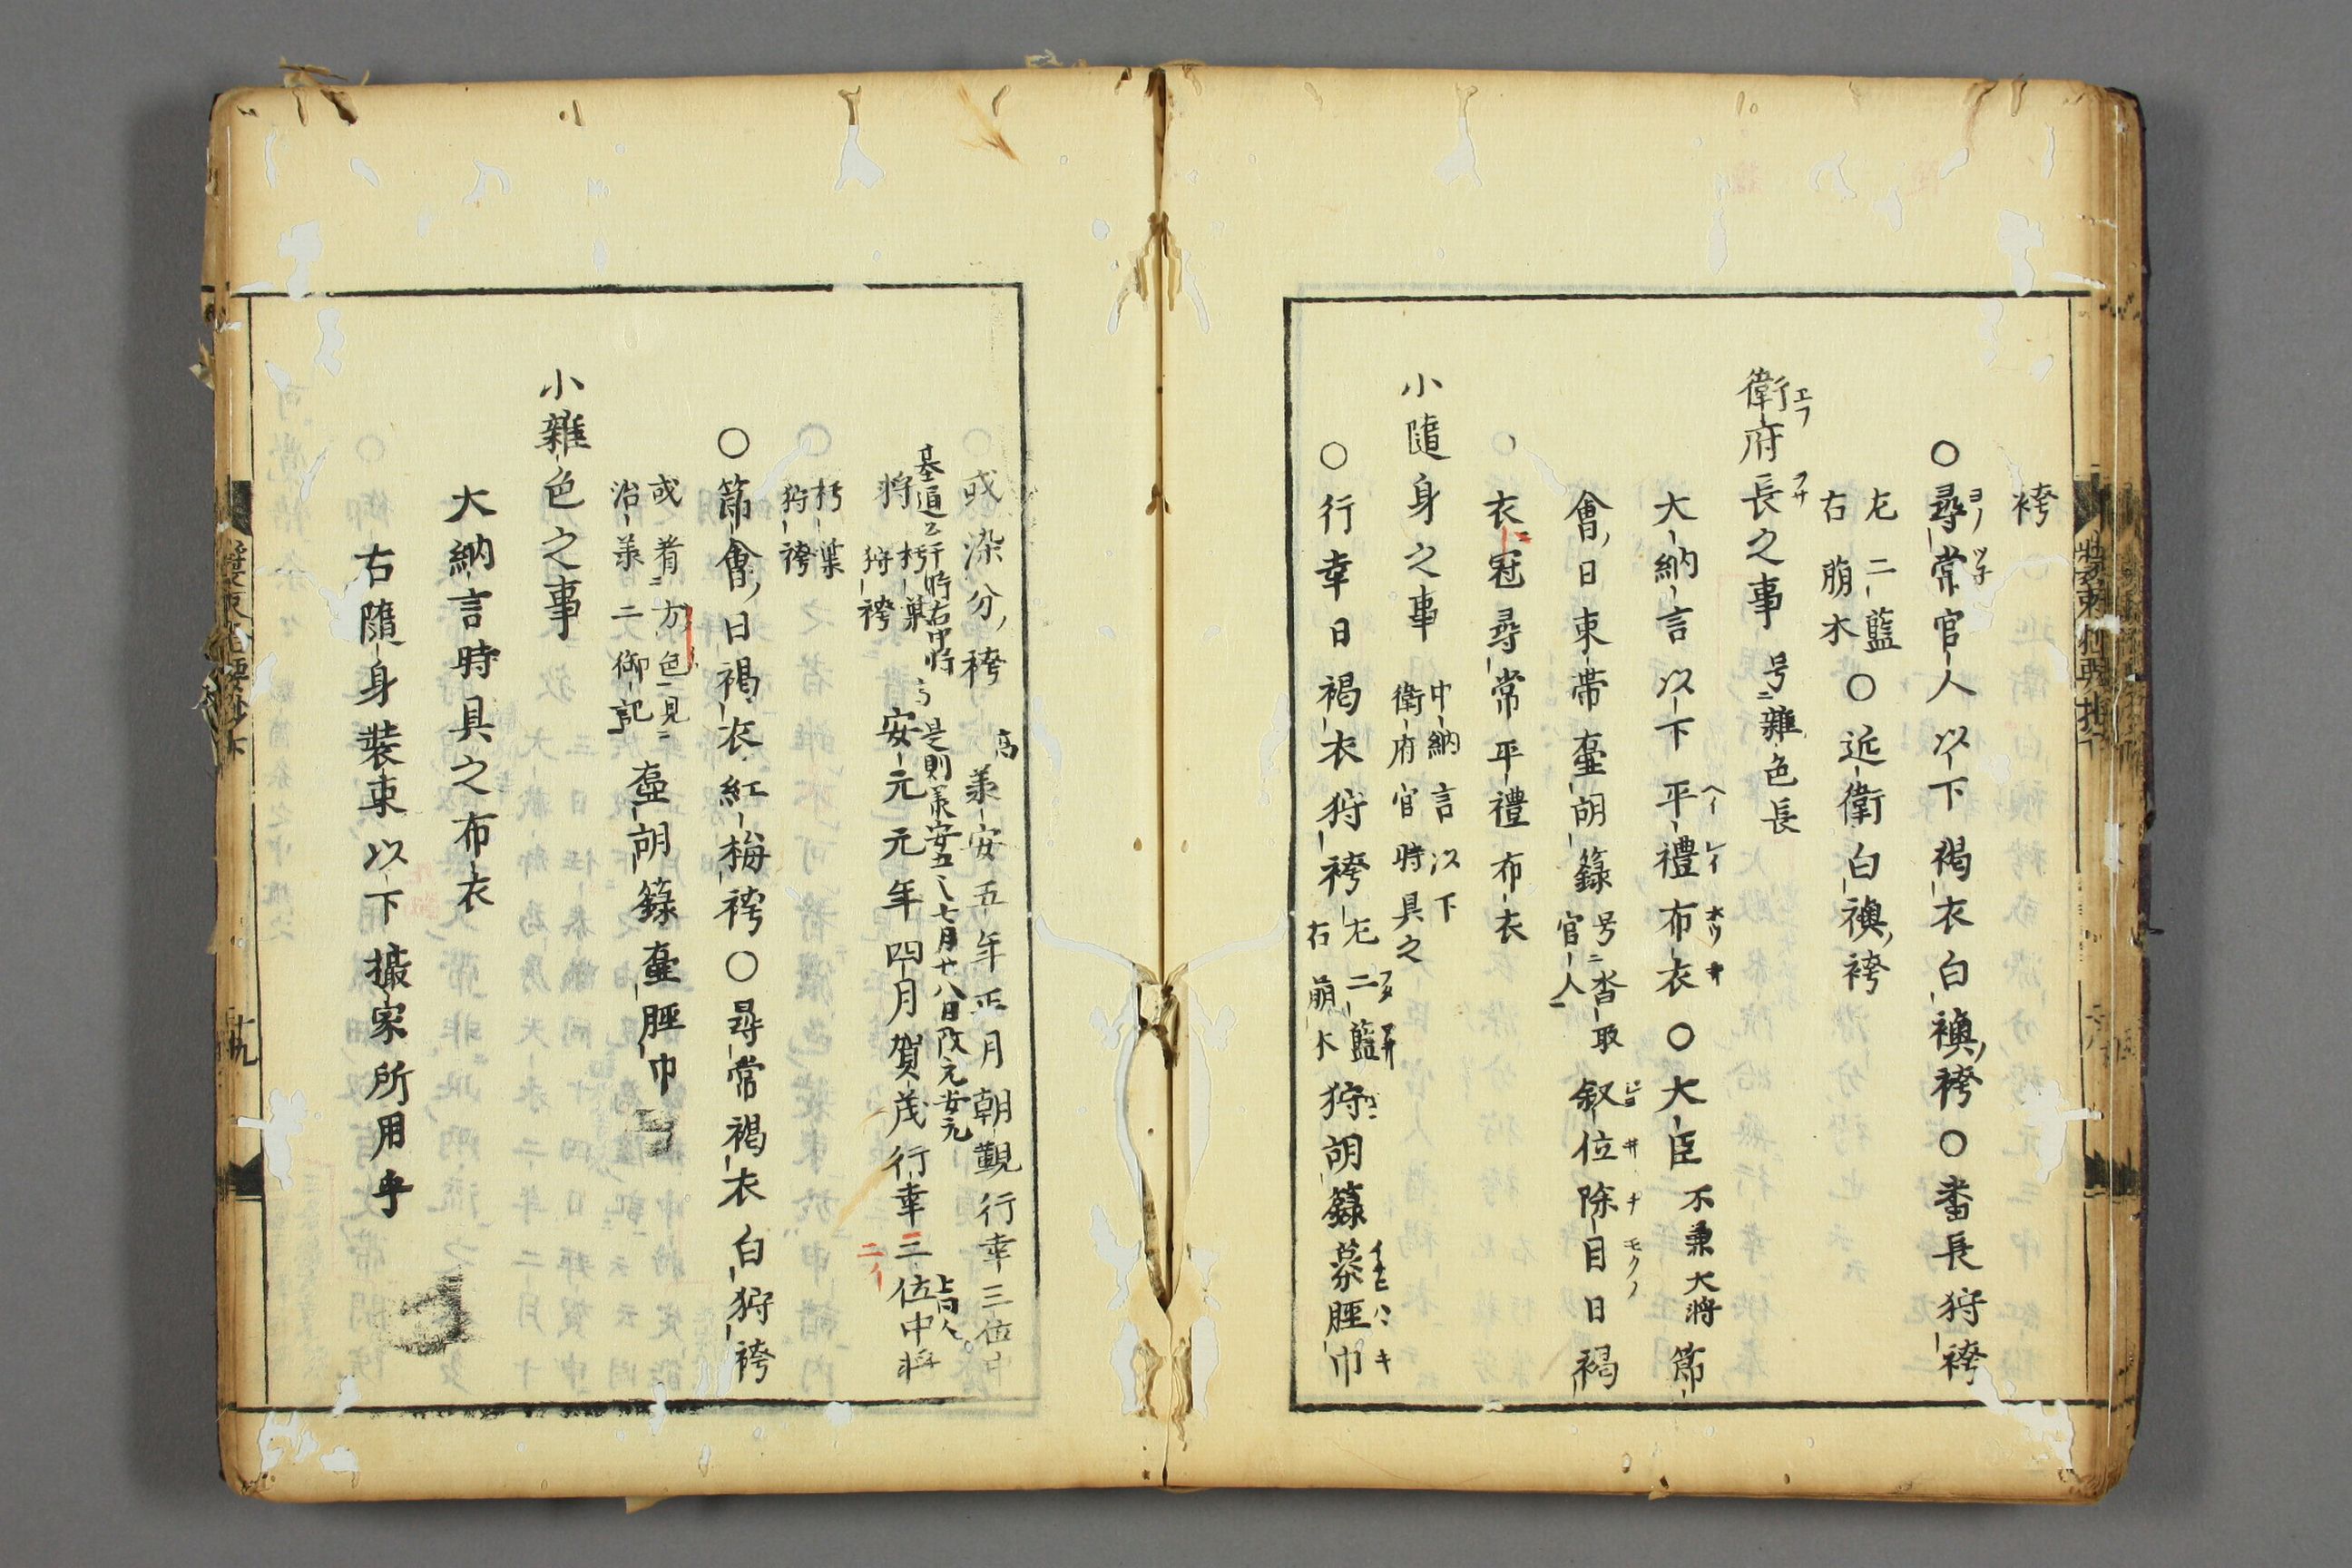 袴
〇尋常官人以下褐衣白襖袴〇番長狩袴
ヨノツ子
左二藍
右萠木
〇近衛白襖袴
衛府長之事
ヱフ
ヲサ
号雜色長
大納言以下平禮布衣〇大臣
ヘイレイ
不兼大將
節
會日束帶壷胡籙
号沓取
官人
叙位除目日褐
衣冠尋常平禮布衣
小隨身之事
中納言以下
衛府官時具之
〇行幸日褐衣狩袴
左二藍
右萠木
狩胡籙綦脛巾
或染分袴
承安五年正月朝覲行幸三位中
將
朽葉
狩袴
安元元年四月賀茂行幸三位中將
是則承安五
七月廿八日改元安元
朽葉
狩袴
〇節會日褐衣紅梅袴〇尋常褐衣白狩袴
或着方色見
治承二御記
壷胡籙壷脛巾
小雜色之事
大納言時具之布衣
右隨身裝束以下攝家所用乎
十九